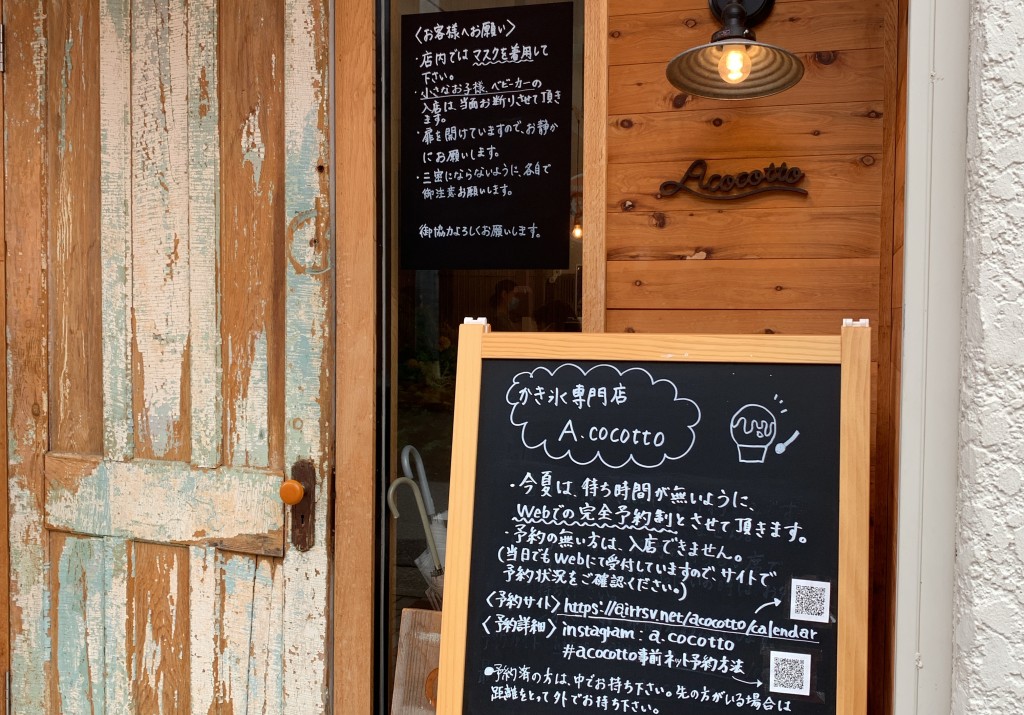 〈お客様へお願い〉
・店内ではマスクを着用して
下さい。
・小さなお子様、ベビーカーの
入店は、当面お断りさせて頂き
ます。
・扉を開けていますので、お静か
にお願いします。
・三密にならないように、各自で
御注意お願いします。
御協力よろしくお願いします。
Acocotto
かき氷専門店
A.cocotto
・今夏は、待ち時間が無いように、
Webでの完全予約制とさせて頂きます。
・予約の無い方は、入店できません。
(当日でもWebにて受付していますので、サイトで
予約状況をご確認ください。)
〈予約サイト〉https://airrsv.net/acocotto/calendar
〈予約詳細〉instagram : a.cocotto
#acocotto事前ネット予約方法
●予約済の方は、中でお待ち下さい。先の方がいる場合は
距離をとって外でお待ち下さい。